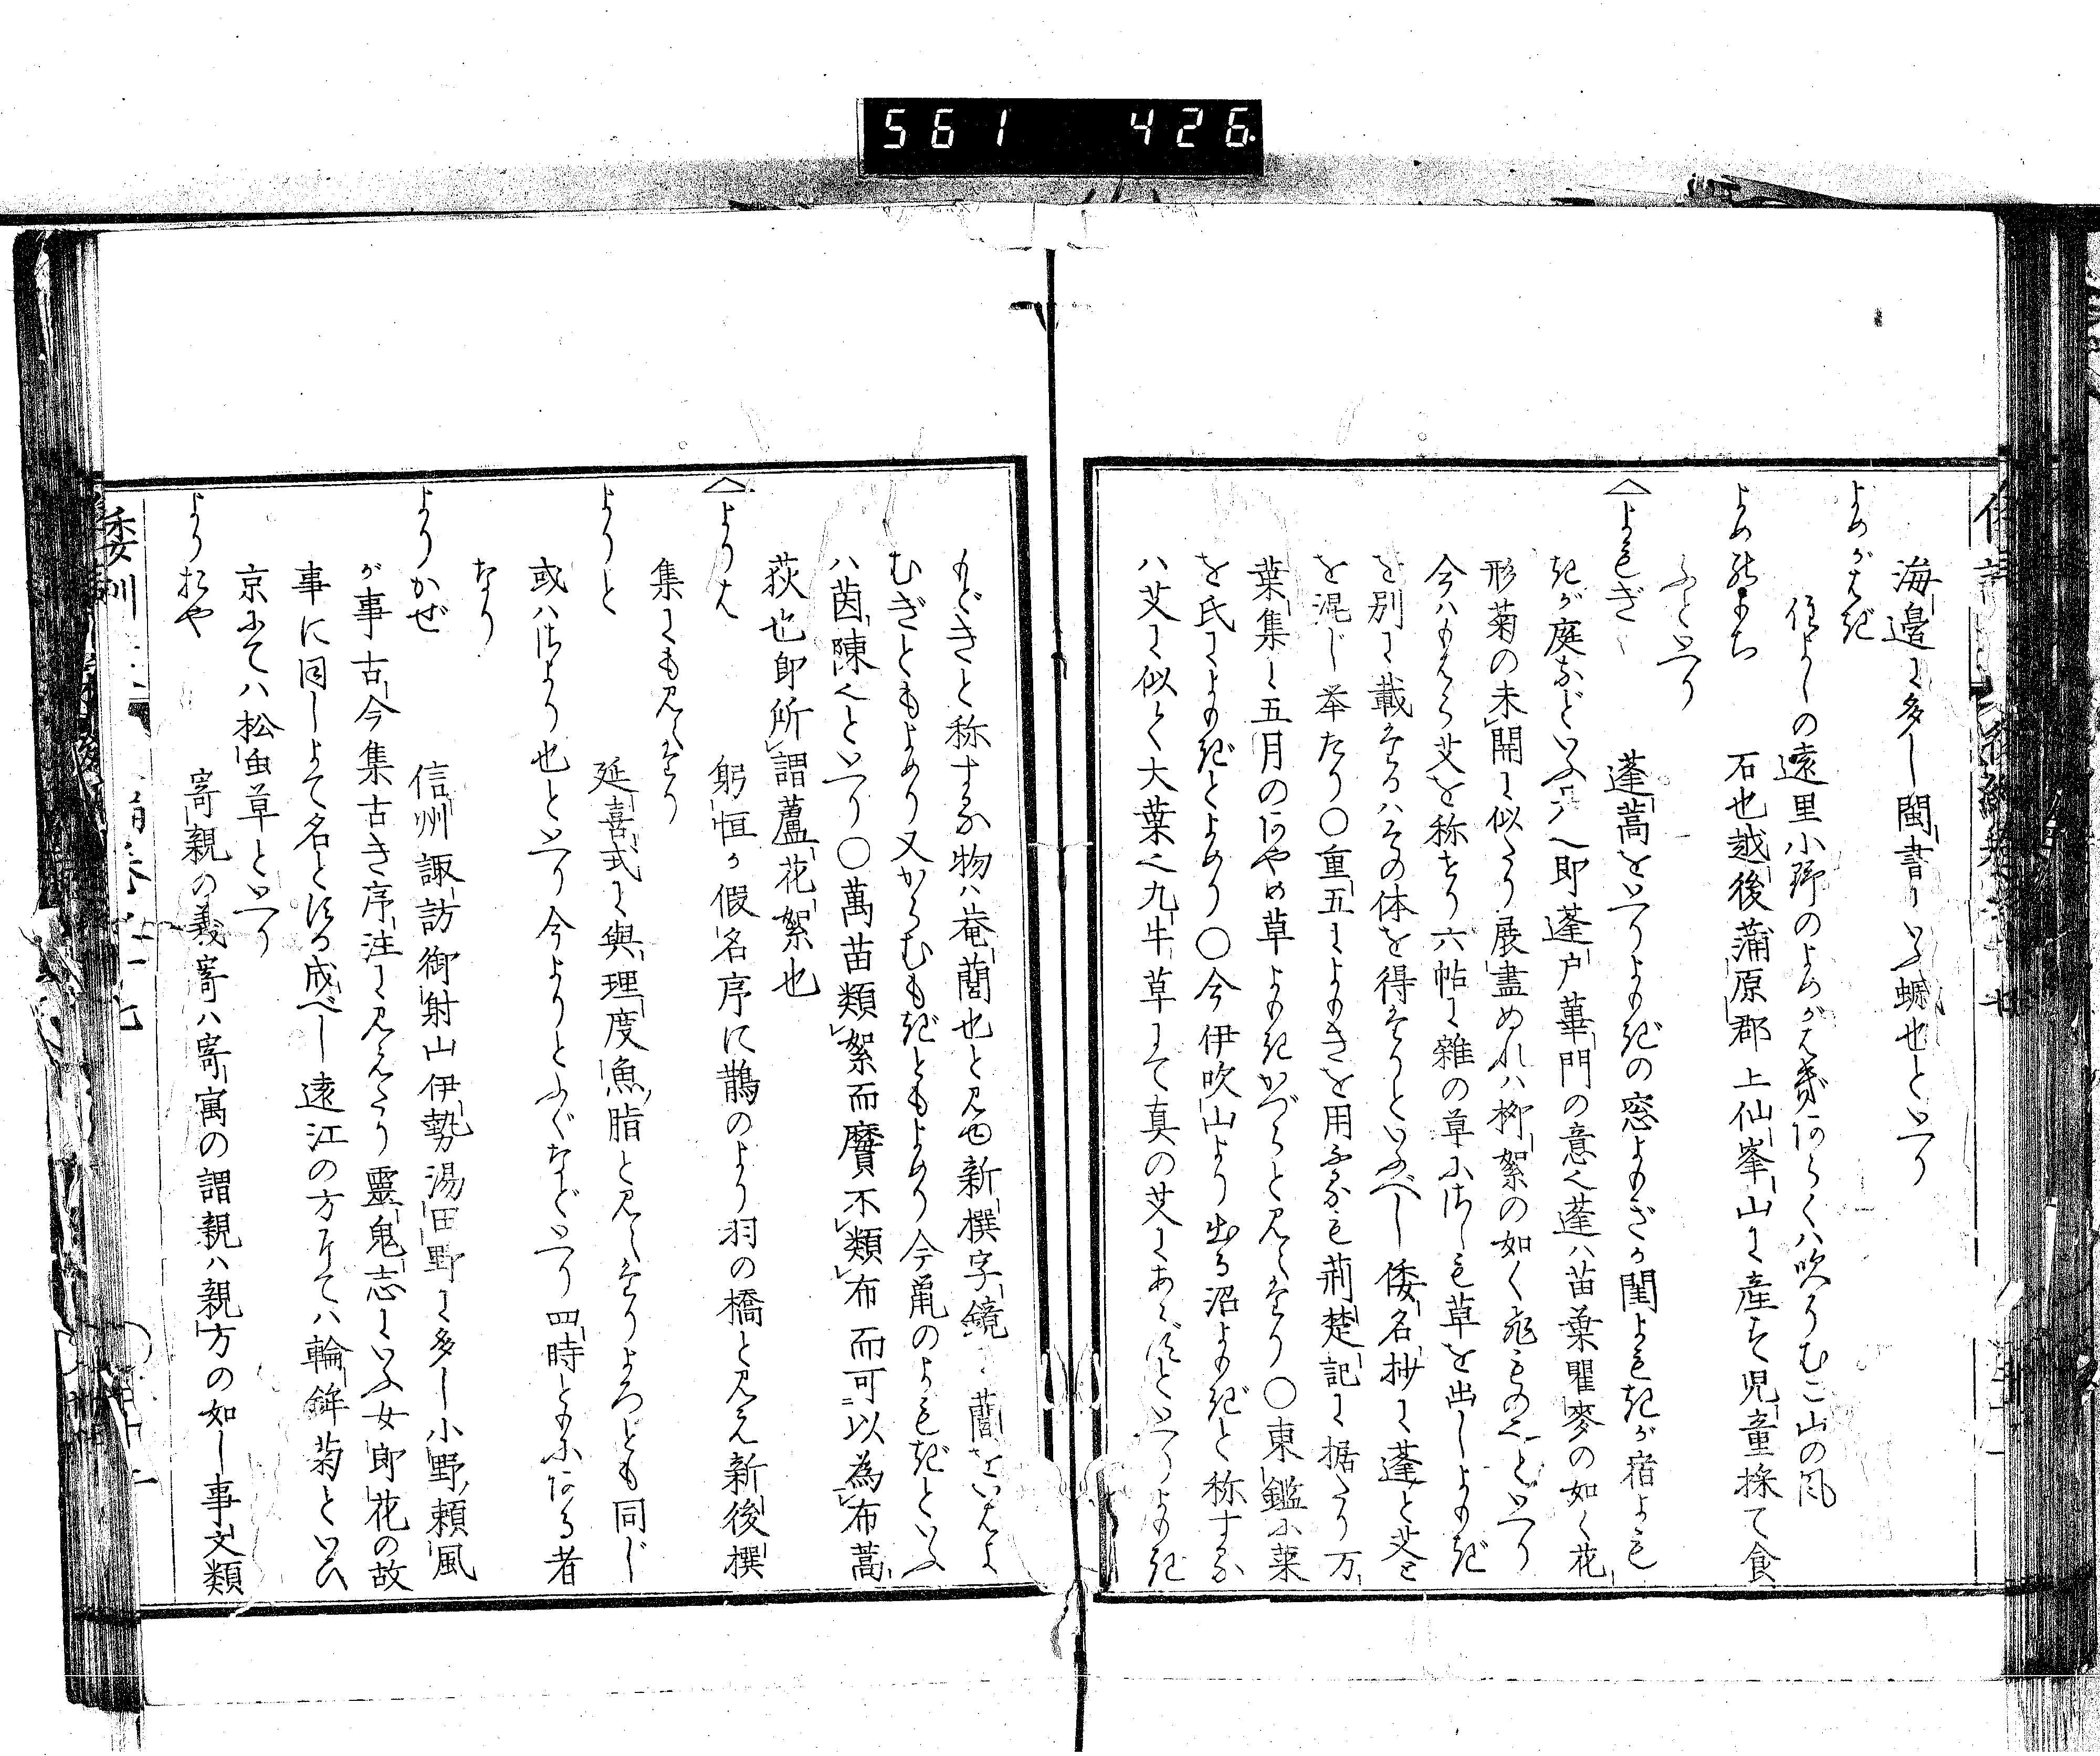 561 426
海邊に多し閩書にいふ蠣也といへり
よめがはぎ
住よしの遠里小野のよめがはぎ
吹うむこ山の風
石也越後蒲原郡上仙峯山に産す児童採て食
ふといへり
よもぎ 蓬蒿をいへりよもぎの窓よもぎが閨よもぎが宿よも
ぎが庭などいふハ即蓬戸蓽門の意也蓬ハ苗葉瞿麥の如く花
形菊の未開に似たり展盡ぬれハ柳絮の如く飛もの也といへり
今ハもはら艾を称せり六帖に雜の草にさしも草を出しよもぎ
を別に載たるハその体を得たりといふべし倭名抄に蓬と艾と
を混じ举たり〇重五によもきを用ふるも荊楚記に据たり万
葉集に五月のあやめ草よもぎかづらと見えたり〇東鑑に葉
を氏によもぎとよめり〇今伊吹山より出る沼よもぎと称する
ハ艾に似て大葉也九牛草にて真の艾にあらずといへりよもぎ
もどきと称する物ハ菴䕡也と見ゆ新撰字鏡に䕡をいはよ
むぎともよめり又からむもぎともよめり今葡のよもぎといふ
ハ茵陳也といへり〇萬苗類絮而贋不類布而可以為布蒿
荻也即所謂蘆花絮也
よりは 躬恒が假名序に鵲のより羽の橋と見え新後撰
集にも見えたり
よりと 延喜式に與理度魚脂と見えたりよつとも同じ
或ハさより也といへり今よりとふぐなどいへり四時ともにある者
なり
よりかぜ 信州諏訪御射山伊勢湯田野に多し小野頼風
が事古今集古き序注に見えたり靈鬼志にいふ女郎花の故
事に同しよて名とせる成べし遠江の方にてハ輪鉾菊といひ
京にてハ松虫草といへり
よりおや 寄親の義寄ハ寄寓の謂親ハ親方の如し事文類